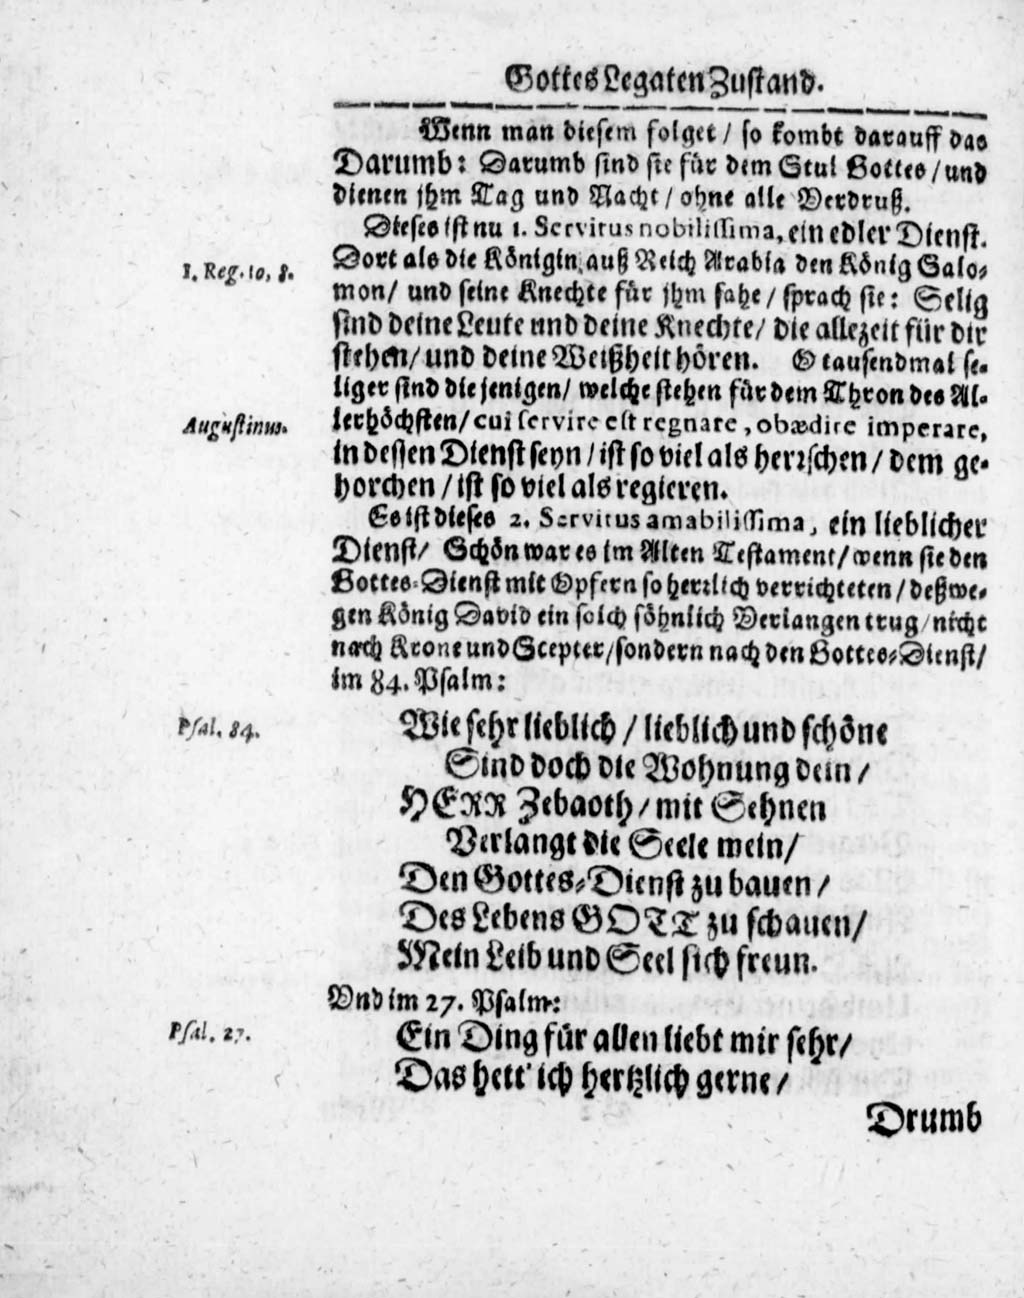 Gottes Legaten Zustand.
Wenn man diesem folget / so kombt darauff das
Darumb: Darumb sind sie für dem Stul Gottes / und
dienen jhm Tag und Nacht / ohne alle Verdruß.
Dieses ist nu 1. Servitus nobilissima, ein edler Dienst.
1. Reg. 10, 8. Dort als die Königin auß Reich Arabia den König Salo-
mon / und seine Knechte für jhm sahe / sprach sie: Selig
sind deine Leute und deine Knechte / die allezeit für dir
stehen / und deine Weißheit hören. O tausendmal se-
liger sind die jenigen / welche stehen für dem Thron des Al-
Augustinus. lerhöchsten / cui servire est regnare, obædire imperare,
in dessen Dienst seyn / ist so viel als herrschen / dem ge-
horchen / ist so viel als regieren.
Es ist dieses 2. Servitus amabilissima, ein lieblicher
Dienst / Schön war es im Alten Testament / wenn sie den
Gottes-Dienst mit Opfern so herrlich verrichteten / deßwe-
gen König David ein solch söhnlich Verlangen trug / nicht
nach Krone und Scepter / sondern nach den Gottes-Dienst /
im 84. Psalm:
Psal. 84. Wie sehr lieblich / lieblich und schöne
Sind doch die Wohnung dein /
HERR Zebaoth / mit Sehnen
Verlangt die Seele mein /
Den Gottes-Dienst zu bauen /
Des Lebens GOTT zu schauen /
Mein Leib und Seel sich freun.
Vnd im 27. Psalm:
Psal. 27. Ein Ding für allen liebt mir sehr /
Das hett' ich hertzlich gerne /
Drumb